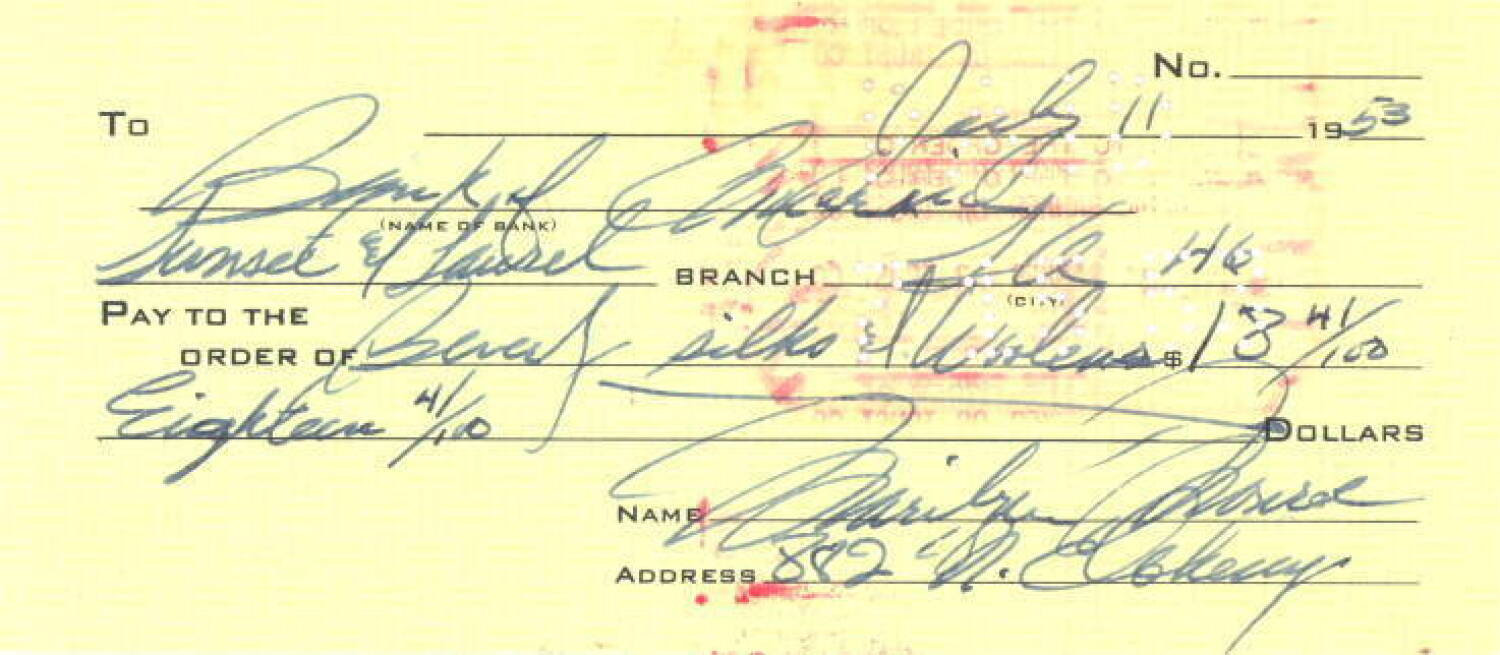 No.
To July 11 1953
Bank of America
(NAME OF BANK)
Sunset & Laurel BRANCH L.A. 46
(CITY)
PAY TO THE
ORDER OF Beverly silks & Woolens $18 41/100
Eighteen 41/100 DOLLARS
NAME Marilyn Monroe
ADDRESS 882 N. Doheny